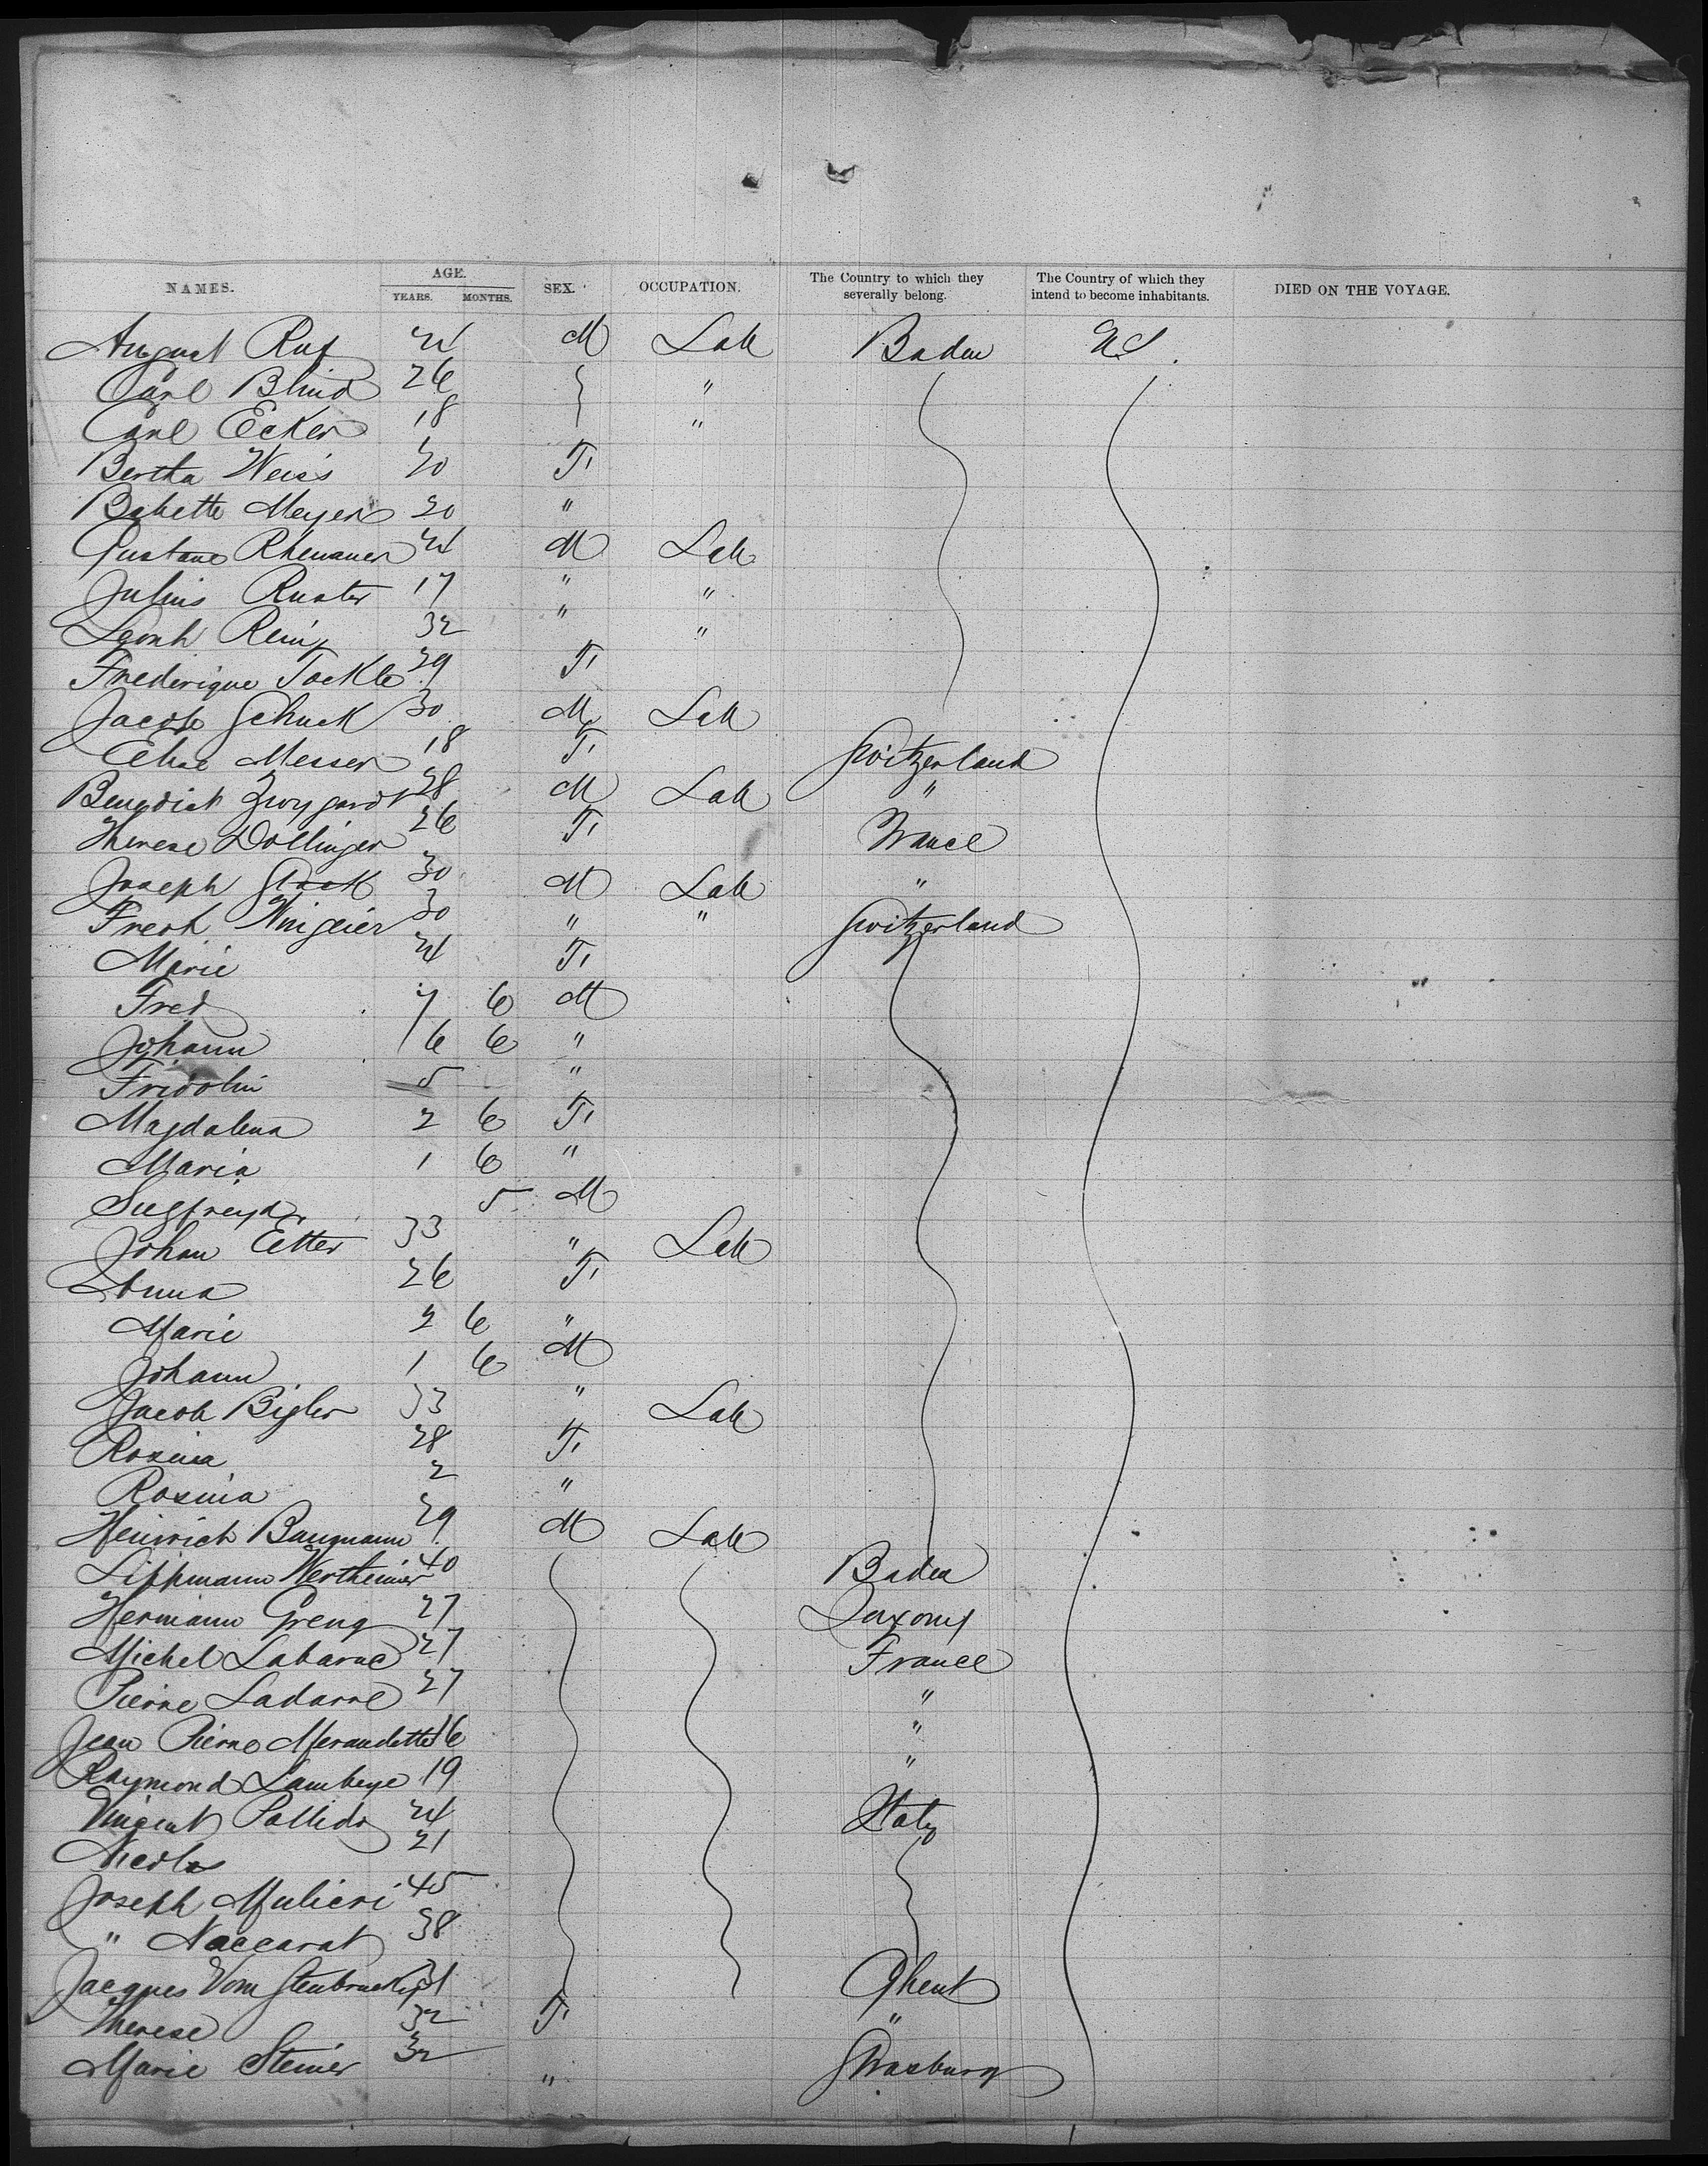 NAMES. AGE. YEARS. MONTHS. SEX. OCCUPATION. The Country to which they severally belong. The Country of which they intend to become inhabitants. DIED ON THE VOYAGE.
August Ruf 24 M Lab Baden U.S.
Carl Blind 26 "
Carl Ecker 18 "
Bertha Weiss 20 F.
Babette Meyer 20 "
Gustave Rhenauer 24 M Lab
Julius Ruster 17 " "
Leonh Reinig 32 " "
Frederique Jockle 29 F.
Jacob Schuck 30 M Lab
Elise Messer 18 F. Switzerland
Benedict Zwygardt 28 M Lab "
Therese Dollinger 26 F. France
Joseph 30 M Lab "
Fredk Wingeier 30 " " Switzerland
Marie 24 F.
Fred 7 6 M
Johann 6 6 "
Fridolin 5 "
Magdalena 2 6 F.
Maria 1 6 "
Siegfreyd 5 M
Johan Etter 33 " Lab
Anna 26 F.
Marie 2 6 "
Johann 1 6 M
Jacob Bigler 33 " Lab
Rosina 28 F.
Rosina 2 "
Heinrich Baumann 29 M Lab
Lippmann Wertheimer 40 Baden
Hermann Greng 27 Saxony
Michel Labarne 27 France
Pierre Ladarre 27 "
Jean Pierre Meraudette 16 "
Raymond Lambeye 19 "
Vincent Pallido 24 Italy
Nicolas 21
Joseph Mulieri 45
" Naccarat 38
Jacques Vom Stenbruck 31 Ghent
Therese 32 F. "
Marie Steiner 32 " Strasburg